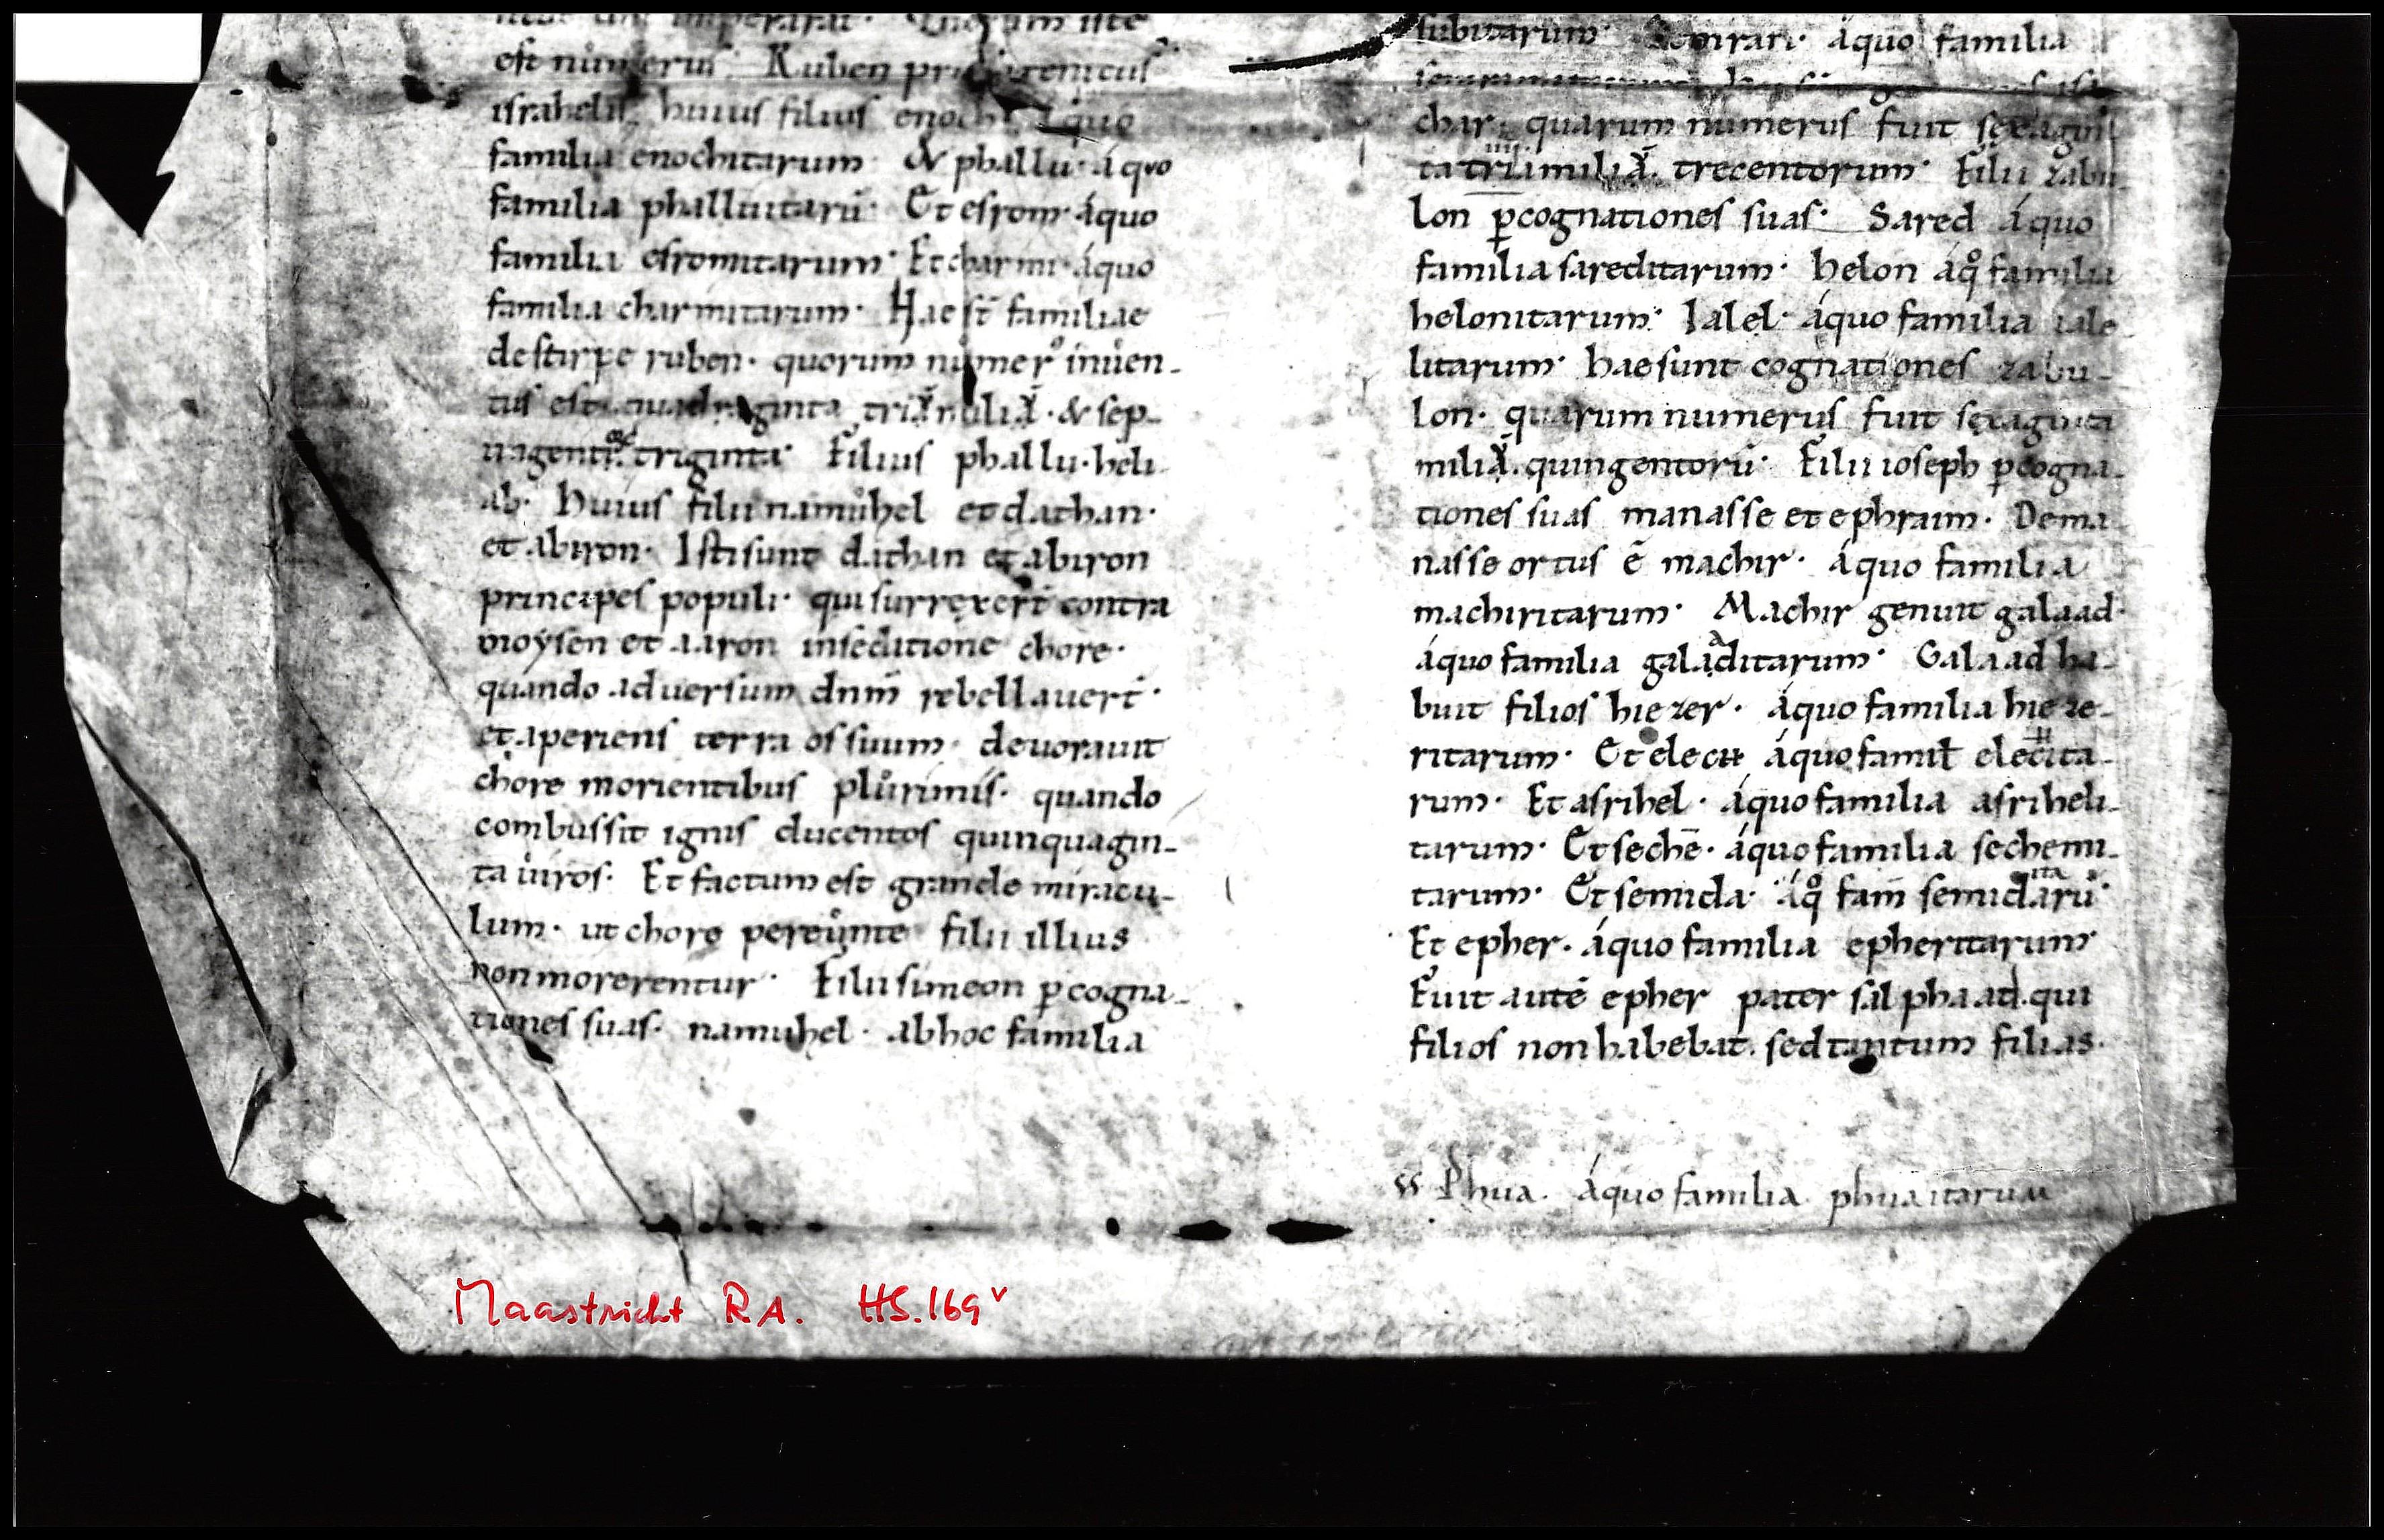 imperarat· Quorum iste
est numerus· Ruben primogenitus
israhelis, huius filius enoch· áquo
familia enochitarum· & phallu· áquo
familia phalluitarū· Et esrom· áquo
familia esromitarum· Et charmi· áquo
familia charmitarum· Hae st̄ familiae
destirpe ruben· quorum numer᷒ inuen-
tus est· quadraginta tria milia· & sep-
tuagenti triginta· Filius phallu· heli-
ab· Huius filii namuhel et dathan·
et abiron· Isti sunt dathan et abiron
principes populi· qui surrexer̄t contra
moẏsen et aaron inseditione chore·
quando aduersum dnm̄ rebellauer̄t·
et aperiens terra os suum· deuorauit
chore morientibus plurimis· quando
combussit ignis ducentos quinquagin-
ta uiros· Et factum est grande miracu-
lum· ut chore pereunte filii illius
non morerentur· Filii simeon ꝑcogna-
tiones suas· namuhel· abhoc familia
subitarum· semrari· áquo familia
char· quarum numerus fuit sexagin-
ta tria milia· trecentorum· Filii zabu-
lon ꝑcognationes suas· Sared áquo
familia sareditarum· helon áqͦ familia
helonitarum· Ialel· áquo familia iale-
litarum· hae sunt cognationes zabu-
lon· quarum numerus fuit sexaginta
milia· quingentorū· Filii ioseph ꝑcogna-
tiones suas manasse et ephraim· De ma-
nasse ortus ē machir· áquo familia
machiritarum· Machir genuit galaad·
áquo familia galaditarum· Galaad ha-
buit filios hiezer· áquo familia hieze-
ritarum· Et elech áquo famił elecita-
rum· Et asrihel· áquo familia asriheli-
tarum· Et sechē· áquo familia sechemi-
tarum· Et semida· áqͦ fam̄ semidaítarū·
Et epher· áquo familia epheritarum·
Fuit autē epher pater salphaad· qui
filios non habebat· sed tantum filias·
Phua· áquo familia phuaitarum
Maastricht RA. HS.169ᵛ